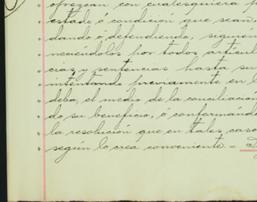 ofrezcan con cualesquiera p
estado ó condición que sean
dando ó defendiendo, seguien
neciéndolos por todos articul
cias y sentencias hasta su
intentando previamente en l
deba, el medio de la conciliación
do su beneficio, ó conformándo
la resolución que en tales caso
según lo crea conveniente. =